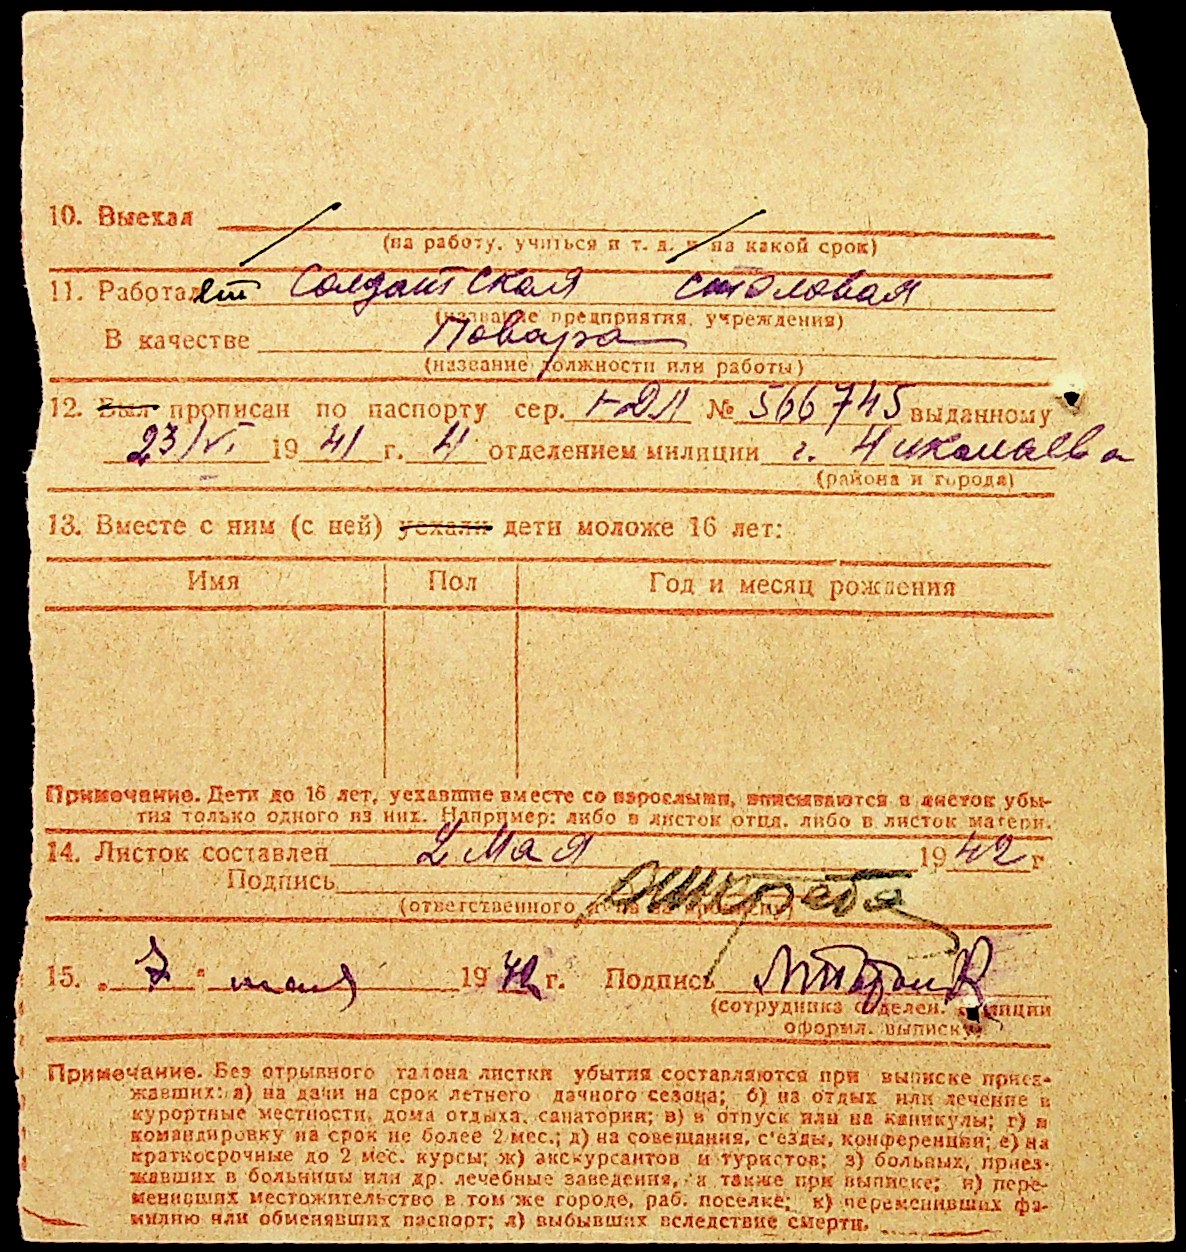 10. Выехал
(на работу, учиться и т. д. и на какой срок)
11. Работает Солдатская столовая
(название предприятия, учреждения)
В качестве Повара
(название должности или работы)
12. Был прописан по паспорту сер. № 566745 выданному
23/VI 1941 г. 4 отделением милиции г. Николаева
(района и города)
13. Вместе с ним (с ней) уехали дети моложе 16 лет:
Имя Пол Год и месяц рождения
Примечание. Дети до 16 лет, уехавшие вместе со взрослыми, вписываются в листок убы-
тия только одного из них. Например: либо в листок отца, либо в листок матери.
14. Листок составлен 2 Мая 1942 г
Подпись
(ответственного за прописку)
15. „7" мая 1942 г. Подпись
(сотрудника отделен. милиции
оформл. выписку)
Примечание. Без отрывного талона листки убытия составляются при выписке приез-
жавших: а) на дачи на срок летнего дачного сезона; б) на отдых или лечение в
курортные местности, дома отдыха, санатории; в) в отпуск или на каникулы; г) в
командировку на срок не более 2 мес.; д) на совещания, с'езды, конференции; е) на
краткосрочные до 2 мес. курсы; ж) экскурсантов и туристов; з) больных, приез-
жавших в больницы или др. лечебные заведения, а также при выписке; и) пере-
менивших местожительство в том же городе, раб. поселке; к) переменивших фа-
милию или обменявших паспорт; л) выбывших вследствие смерти.